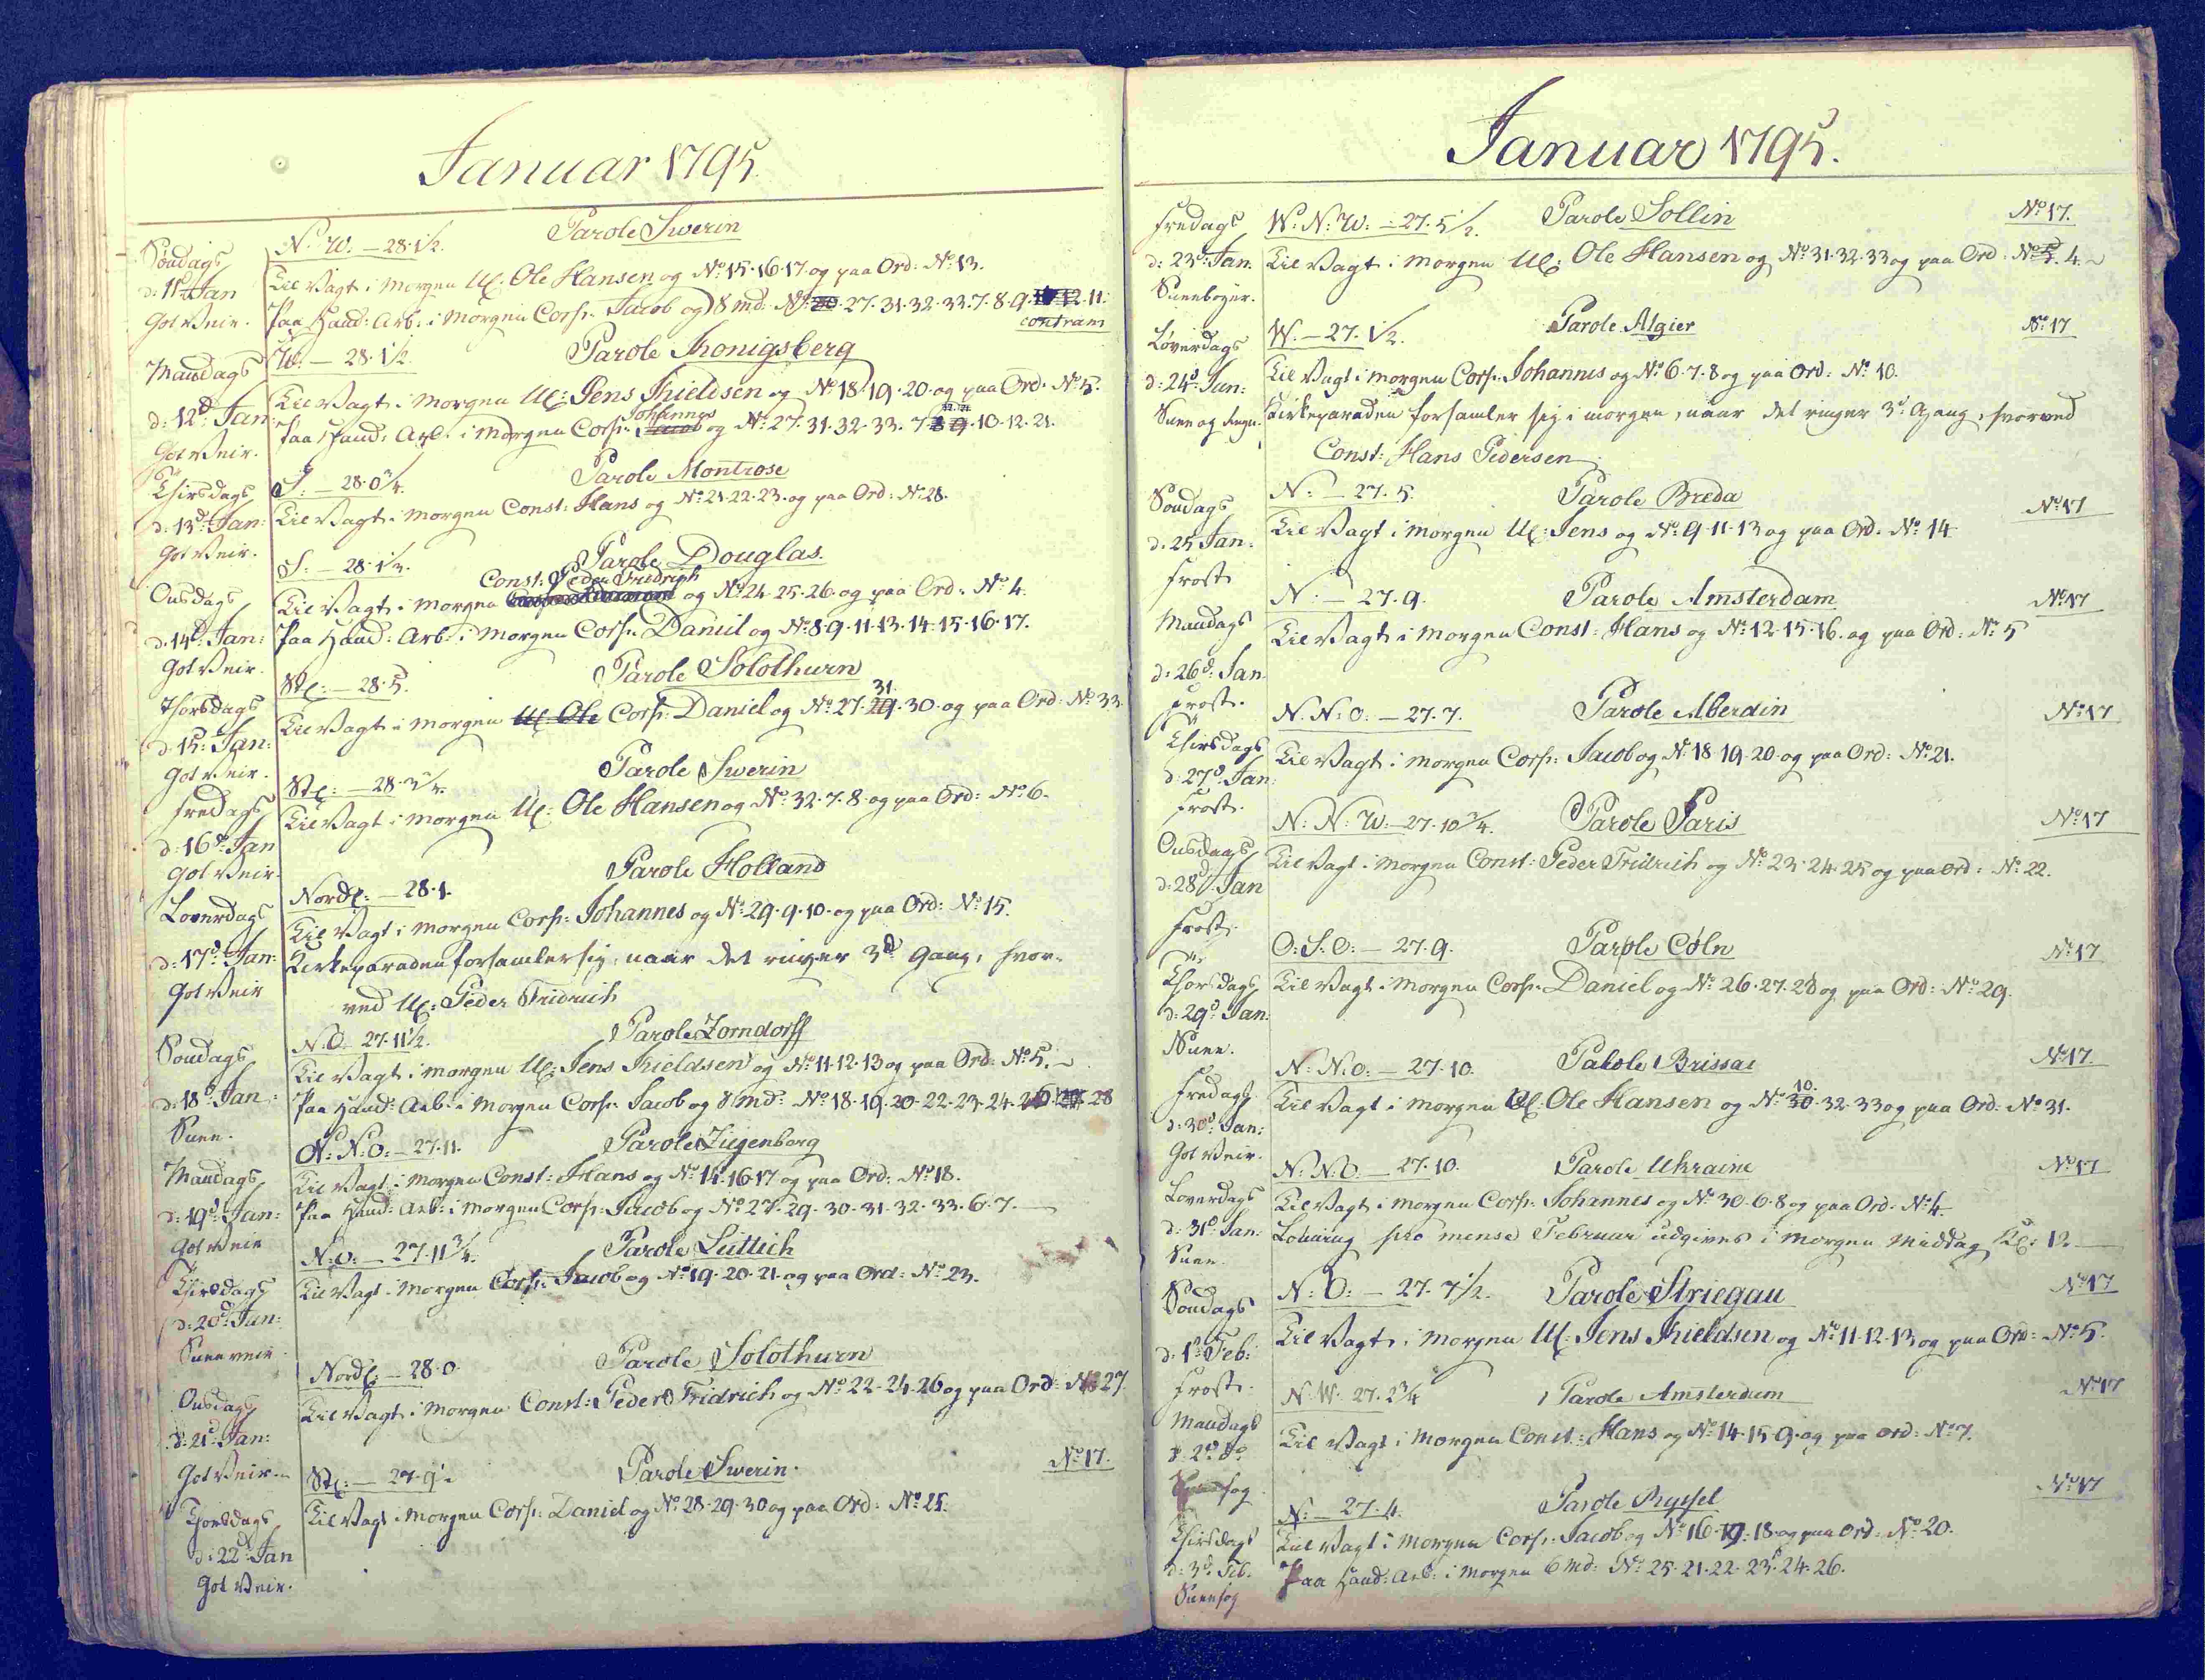 Januar 1795.
Parole Swerin
N. W. — 28. 1/2.
Søndags
Til Vagt i Morgen U: Ole Hansen og No 15. 16. 17. og paa Ord: No 13.
d: 11 Jan
Paa Haand: Arb: i Morgen Corp: Jacob og 8 md: No 27. 31. 32. 33. 7. 8. 9. 11.
Got Veir.
contram
W: — 28. 1/2
Parole Konigsberg
Mandags
Til Vagt i Morgen U: Jens Kieldsen og No 18. 19. 20. og paa Ord: No 5.
d: 12d Jan:
Johannes
Paa Haand: Arb: i Morgen Corp: Jacob og No 27. 31. 32. 33. 7. 8. 9. 10. 12. 21.
Got Veir.
S: — 28. 0 3/4.
Parole Montrose
Thirsdags
Til Vagt i Morgen Const: Hans og No 21. 22. 23. og paa Ord: No 28.
d: 13d Jan:
Got Veir.
S: — 28. 1/2.
Parole Douglas.
Const: Peder Fridrich
Onsdags
Til Vagt i Morgen og No 24. 25. 26. og paa Ord: No 4.
d: 14d Jan:
Paa Haand: Arb: i Morgen Corp: Daniel og No 8. 9. 11. 13. 14. 15. 16. 17.
Got Veir.
Stl: — 28. 5.
Parole Solothurn
31.
Thorsdags
Til Vagt i Morgen U: Ole Corp: Daniel og No 27. 29. 30. og paa Ord: No 33.
d: 15: Jan:
Got Veir.
Stl: — 28. 3
Parole Swerin
Fredags
Til Vagt i Morgen U: Ole Hansen og No 32. 7. 8. og paa Ord: No 6.
d: 16d Jan
Got Veir.
Nordl: — 28. 1.
Parole Holland
Løverdags
Til Vagt i Morgen Corp: Johannes og No 29. 9. 10. og paa Ord: No 15.
d: 17d Jan:
Kirkeparaden forsamler sig, naar det ringer 3d Gang, hvor-
Got Veir
ved U: Peder Fridrich
N. O. 27. 11 1/2.
Parole Zorndorff
Søndags
Til Vagt i Morgen U: Jens Kieldsen og No 11. 12. 13 og paa Ord: No 5.
d: 18d Jan:
Paa Haand: Arb: i Morgen Corp: Jacob og 8 md: No 18. 19. 20. 22. 23. 24. 26. 28
Snee.
N: N: O: — 27. 11.
Parole Ziegenborg
Mandags
Til Vagt i Morgen Const: Hans og No 14. 16. 17 og paa Ord: No 18.
d: 19d Jan:
Paa Haand: Arb: i Morgen Corp: Jacob og No 27. 29. 30. 31. 32. 33. 6. 7.
Got Veir
N: O: — 27. 11 3/4.
Parole Lüttich
Thirsdags
Til Vagt i Morgen Corp: Jacob og No 19. 20. 21. og paa Ord: No 23.
d: 20d Jan:
Snee veir.
Nordl: — 28. 0.
Parole Solothurn
Onsdags
Til Vagt i Morgen Const: Peder Fridrich og No 22. 24. 26 og paa Ord: No 27.
d: 21d Jan:
Got Veir.
Stl: — 27. 9
Parole Swerin.
No 17.
Thorsdags
Til Vagt i Morgen Corp: Daniel og No 28. 29. 30 og paa Ord: No 25.
d: 22d Jan
Got Veir.
Januar 1795.
Fredags
W: N: W: — 27. 5 1/2.
Parole Sollin
No 17.
d: 23d Jan.
Til Vagt i Morgen U: Ole Hansen og No 31. 32. 33 og paa Ord: No 4.
Sneebøyer.
W. — 27. 1/2.
Parole Algier
No 17
Løverdags
d: 24d Jan:
Til Vagt i Morgen Corp: Johannes og No 6. 7. 8 og paa Ord: No 10.
Snee og Regn.
Kirkeparaden forsamler sig i morgen, naar det ringer 3d Gang, hvorved
Const: Hans Pedersen
N: — 27. 5.
Parole Breda
No 17
Søndags
d: 25 Jan:
Til Vagt i Morgen U: Jens og No 9. 11. 13 og paa Ord. No 14.
Frost
N: — 27. 9.
Parole Amsterdam
No 17
Mandags
Til Vagt i Morgen Const: Hans og No 12. 15. 16. og paa Ord: No 5
d: 26d Jan
Frost.
N. N: O. — 27. 7.
Parole Aberdin
No 17
Thirsdags
Til Vagt i Morgen Corp: Jacob og No 18 19. 20. og paa Ord: No 21.
d: 27d Jan:
Frost.
N: N: W. — 27. 10 3/4.
Parole Paris
No 17
Onsdags
Til Vagt i Morgen Const: Peder Fridrich og No 23. 24. 25 og paa Ord: No 22.
d: 28d Jan
Frost.
O: S. O: — 27. 9.
Parole Cøln
No 17
Thorsdags
Til Vagt i Morgen Corp: Daniel og No 26. 27. 28 og paa Ord: No 29.
d: 29d Jan:
Snee.
N: N. O: — 27. 10.
Parole Brissac
No 17.
10.
Fredags
Til Vagt i Morgen U: Ole Hansen og No 30. 32. 33 og paa Ord: No 31.
d: 30d Jan:
Got Veir.
N: N: O. — 27. 10.
Parole Ukraine
No 17
Løverdags
Til Vagt i Morgen Corp: Johannes og No 30. 6. 8 og paa Ord. No 4.
d: 31d Jan:
Lønning pro mense Februar udgives i Morgen Middag Kl: 12.
Snee.
N: O: — 27. 7 1/2.
Parole Striegau
No 17
Søndags
Til Vagt i Morgen U: Jens Kieldsen og No 11. 12. 13 og paa Ord: No 5.
d: 1d Feb:
Frost.
N. W. 27. 2 3/4
Parole Amsterdam
No 17
Mandags
Til Vagt i Morgen Const: Hans og No 14. 15. 9. og paa Ord: No 7.
d: 2d do
N: — 27. 4.
Parole Ryssel
No 17
Thirsdags
Til Vagt i Morgen Corp: Jacob og No 16. 18. og paa Ord: No 20.
d: 3d Feb.
Paa Haand: Arb: i Morgen 6 md: No 25. 21. 22. 23. 24. 26.
Sneefog